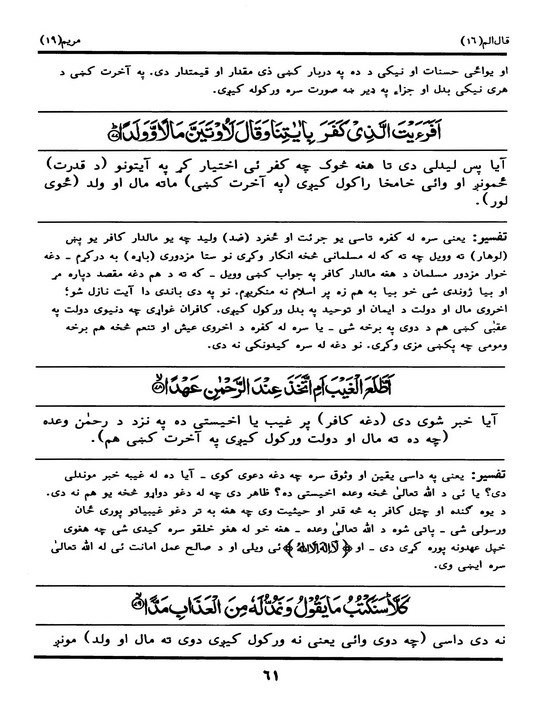 قال الم(۱۶) مریم(۱۹)
او یواځی حسنات او نیکی د ده په دربار کښی ذی مقدار او قیمتدار دی. په آخرت کښی د
هری نیکی بدل او جزاء په ډیر ښه صورت سره ورکوله کیږی.
اَفَرَءَيْتَ الَّذِيْ كَفَرَ بِاٰيٰتِنَا وَقَالَ لَاُوْتَيَنَّ مَالًا وَّوَلَدًا ۷۷
آیا پس لیدلی دی تا هغه څوک چه کفر ئی اختیار کړ په آیتونو (د قدرت)
ځمونږ او وائی خامخا راکول کیږی (په آخرت کښی) ماته مال او ولد (ځوی
لور).
تفسیر: یعنی سره له کفره تاسی یو جرئت او څخرد (ضد) ولید چه یو مالدار کافر یو پښ
(لوهار) ته وویل چه ته که له مسلمانی څخه انکار وکړی نو ستا مزدوری (باړه) به درکړم ـ دغه
خوار مزدور مسلمان د هغه مالدار کافر په جواب کښی وویل ـ که ته د هم دغه مقصد دپاره مړ
او بیا ژوندی شی خو بیا به هم زه پر اسلام نه منکریږم. نو په دی باندی دا آیت نازل شو؛
اخروی مال او دولت د ایمان او توحید په بدل ورکول کیږی. کافران غواړی چه دنیوی دولت په
عقبٰی کښی هم د دوی په برخه شی ـ یا سره له کفره د اخروی عیش او تنعم څخه هم برخه
ومومی چه پکښی مزی وکړی. نو دغه له سره کیدونکی نه دی.
اَطَّلَعَ الْغَيْبَ اَمِ اتَّخَذَ عِنْدَ الرَّحْمٰنِ عَهْدًا ۷۸
آیا خبر شوی دی (دغه کافر) پر غیب یا اخیستی ده په نزد د رحمٰن وعده
(چه ده ته مال او دولت ورکول کیږی په آخرت کښی هم).
تفسیر: یعنی په داسی یقین او وثوق سره چه دغه دعوی کوی ـ آیا ده له غیبه خبر موندلی
دی؟ یا ئی د الله تعالیٰ څخه وعده اخیستی ده؟ ظاهر دی چه له دغو دواړو څخه یو هم نه دی.
د یوه گنده او چتل کافر به څه قدر او حیثیت وی چه هغه به تر دغو غیبیاتو پوری ځان
ورسولی شی ـ پاتی شوه د الله تعالیٰ وعده ـ هغه خو له هغو خلقو سره کیدی شی چه هغوی
خپل عهدونه پوره کړی دی ـ او ﴿لَا اِلٰهَ اِلَّا اللهُ﴾ ئی ویلی او د صالح عمل امانت ئی له الله تعالیٰ
سره ایښی وی.
كَلَّا سَنَكْتُبُ مَا يَقُوْلُ وَنَمُدُّ لَهٗ مِنَ الْعَذَابِ مَدًّا ۷۹
نه دی داسی (چه دوی وائی یعنی نه ورکول کیږی دوی ته مال او ولد) مونږ
٦١